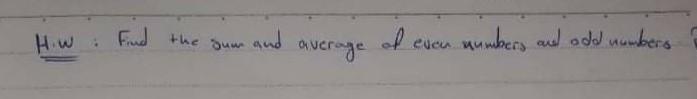 H.W : Find the sum and average of even numbers and odd numbers ?